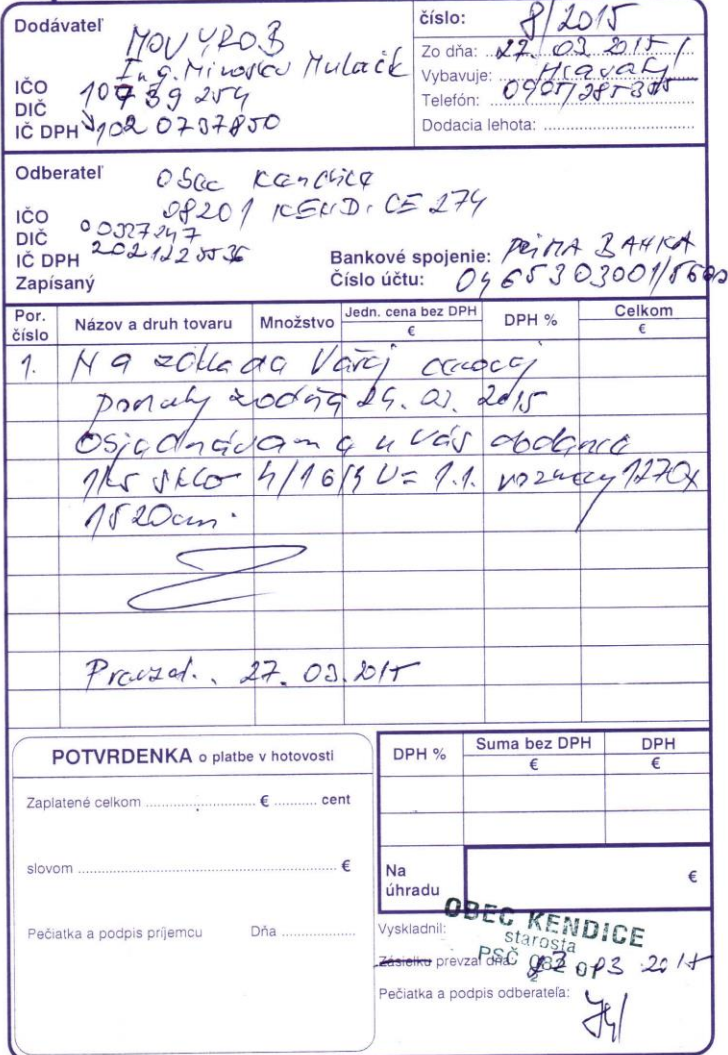 Dodávateľ
MOVYROB
Ing. Miroslav Mulačik
IČO
DIČ
IČ DPH 1020737850
číslo: 8/2015
Zo dňa: 27. 03. 2015
Vybavuje:
Telefón:
Dodacia lehota:
Odberateľ
Obec Kendice
08201 KENDICE 274
IČO 00327247
DIČ
IČ DPH
Zapísaný
Bankové spojenie: PRIMA BANKA
Číslo účtu: 0465303001/5600
Por. číslo
Názov a druh tovaru
Množstvo
Jedn. cena bez DPH
€
DPH %
Celkom
€
1. Na základe Vašej cenovej
ponuky zo dňa
Objednávame u Vás dodanie
1ks sklo 4/16/4 U= 1.1. rozmery 1270x
1520cm.
27. 03. 2015
POTVRDENKA o platbe v hotovosti
Zaplatené celkom € cent
slovom €
Pečiatka a podpis príjemcu Dňa
DPH %
Suma bez DPH
€
DPH
€
Na úhradu €
Vyskladnil:
OBEC KENDICE
starosta
PSČ 082 01
Zásielku prevzal dňa:
Pečiatka a podpis odberateľa: